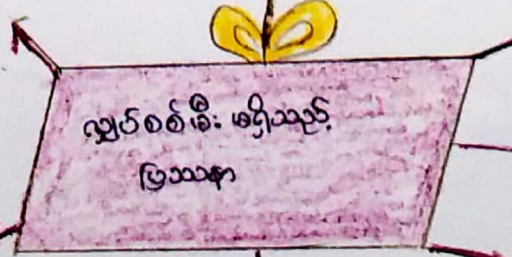 လျှပ်စစ်မီး မရှိသည့်
ပြဿနာ